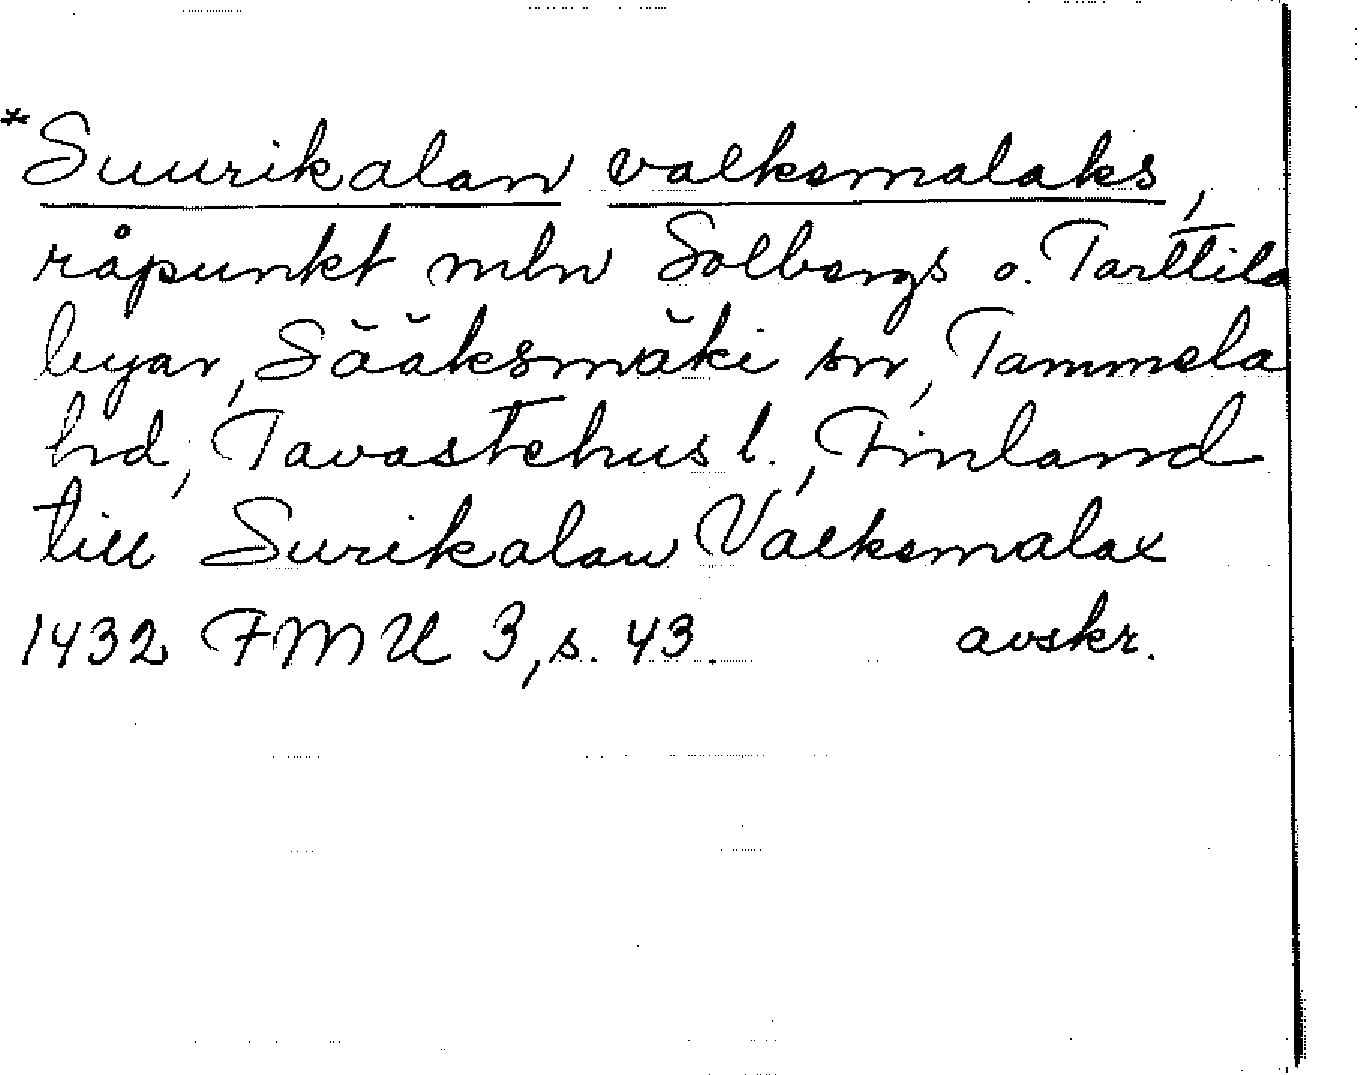 *Suurikalan valkamalaks,
råpunkt mln Solbergs o. Tarttila
byar, Sääksmäki sn, Tammela
hd, Tavastehus l., Finland
till Surikalan Valkamalax
1432 FMU 3, s. 43. avskr.